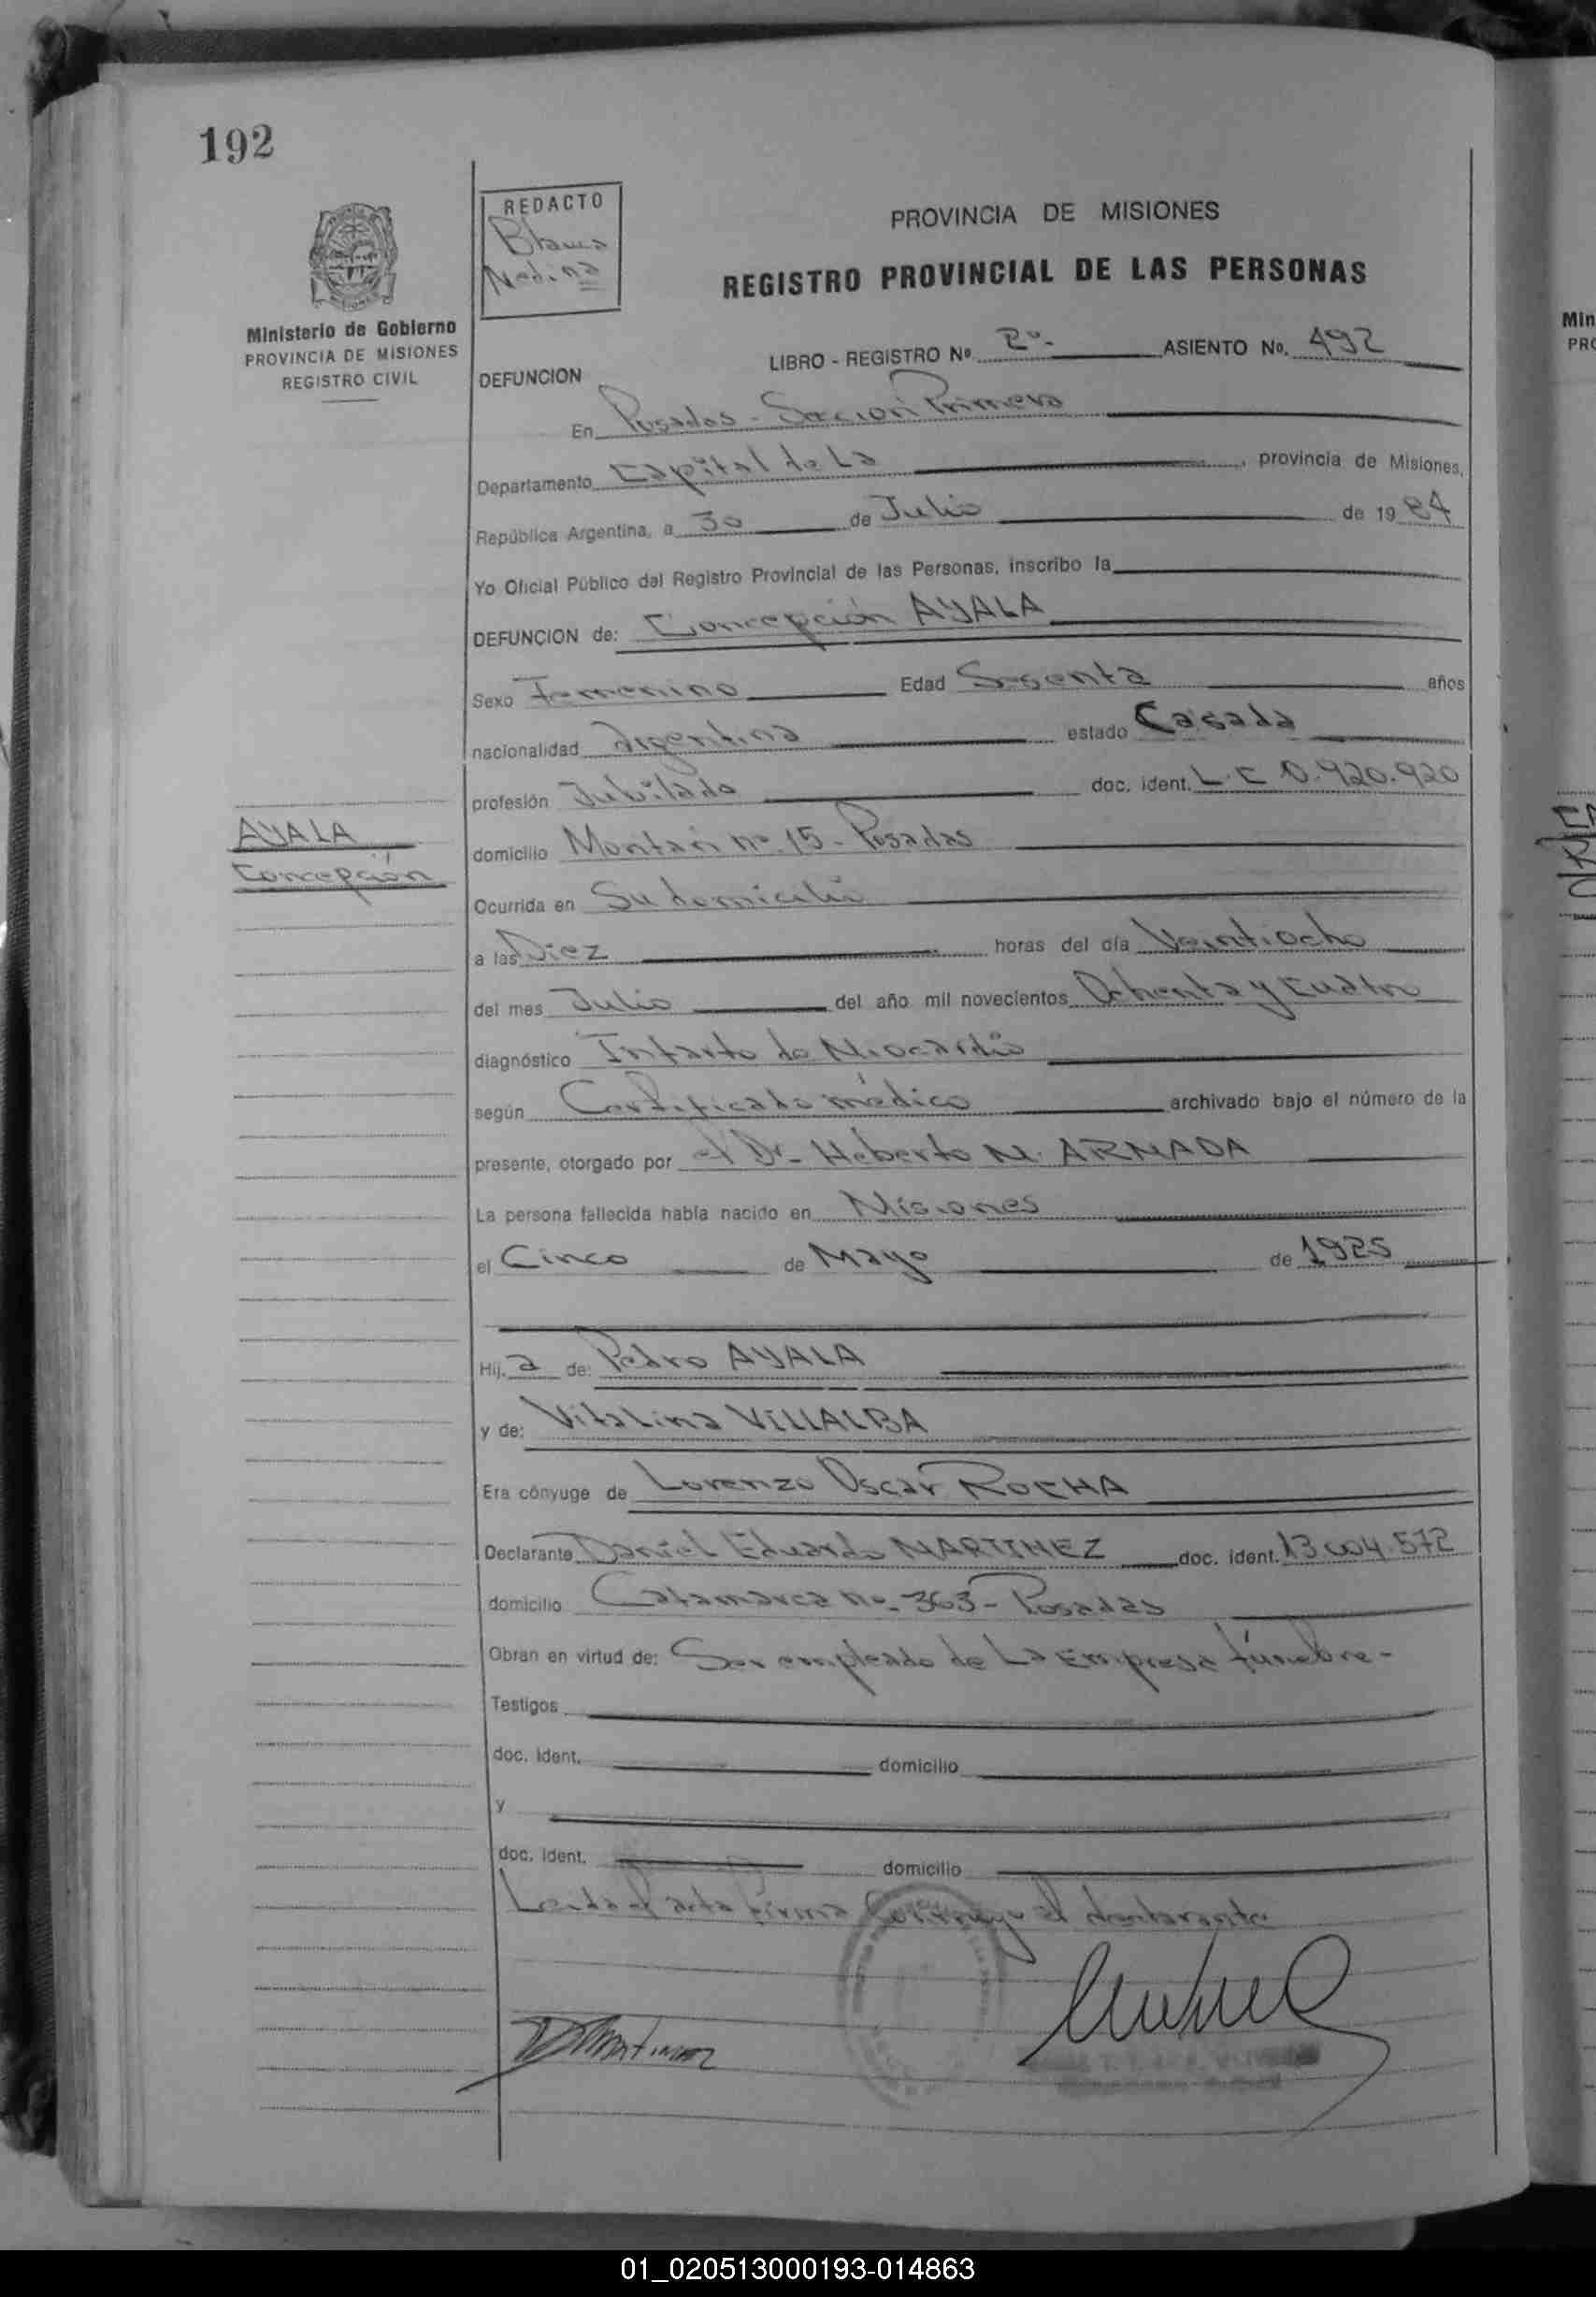 192
REDACTO
Blanca
Medina
PROVINCIA DE MISIONES
REGISTRO PROVINCIAL DE LAS PERSONAS
Ministerio de Gobierno
PROVINCIA DE MISIONES
REGISTRO CIVIL
LIBRO - REGISTRO Nº 2º- ASIENTO No. 492
DEFUNCION
En Posadas - Sección Primera
Departamento Capital de La , provincia de Misiones,
República Argentina, a 30 de Julio de 19 84
Yo Oficial Público del Registro Provincial de las Personas, inscribo la
DEFUNCION de: Concepción AYALA
Sexo Femenino Edad Sesenta años
nacionalidad Argentina estado Casada
profesión Jubilada doc. ident. L.C 0.920.920
AYALA
Concepción
domicilio no. 15 - Posadas
Ocurrida en Su domicilio
a las Diez horas del día Veintiocho
del mes Julio del año mil novecientos Ochenta y Cuatro
diagnóstico Infarto de Miocardio
según Certificado médico archivado bajo el número de la
presente, otorgado por el Dr. Heberto M. ARMADA
La persona fallecida había nacido en Misiones
el Cinco de Mayo de 1925
Hij. a de: Pedro AYALA
y de: Vitalina VILLALBA
Era cónyuge de Lorenzo Oscar ROCHA
Declarante Daniel Eduardo MARTINEZ doc. ident. 13.004.572
domicilio Catamarca no. 363 - Posadas
Obran en virtud de: Ser empleado de La Empresa fúnebre -
Testigos
doc. ident. domicilio
y
doc. ident. domicilio
Leída el acta firma conmigo el declarante
DMartinez
01_020513000193-014863